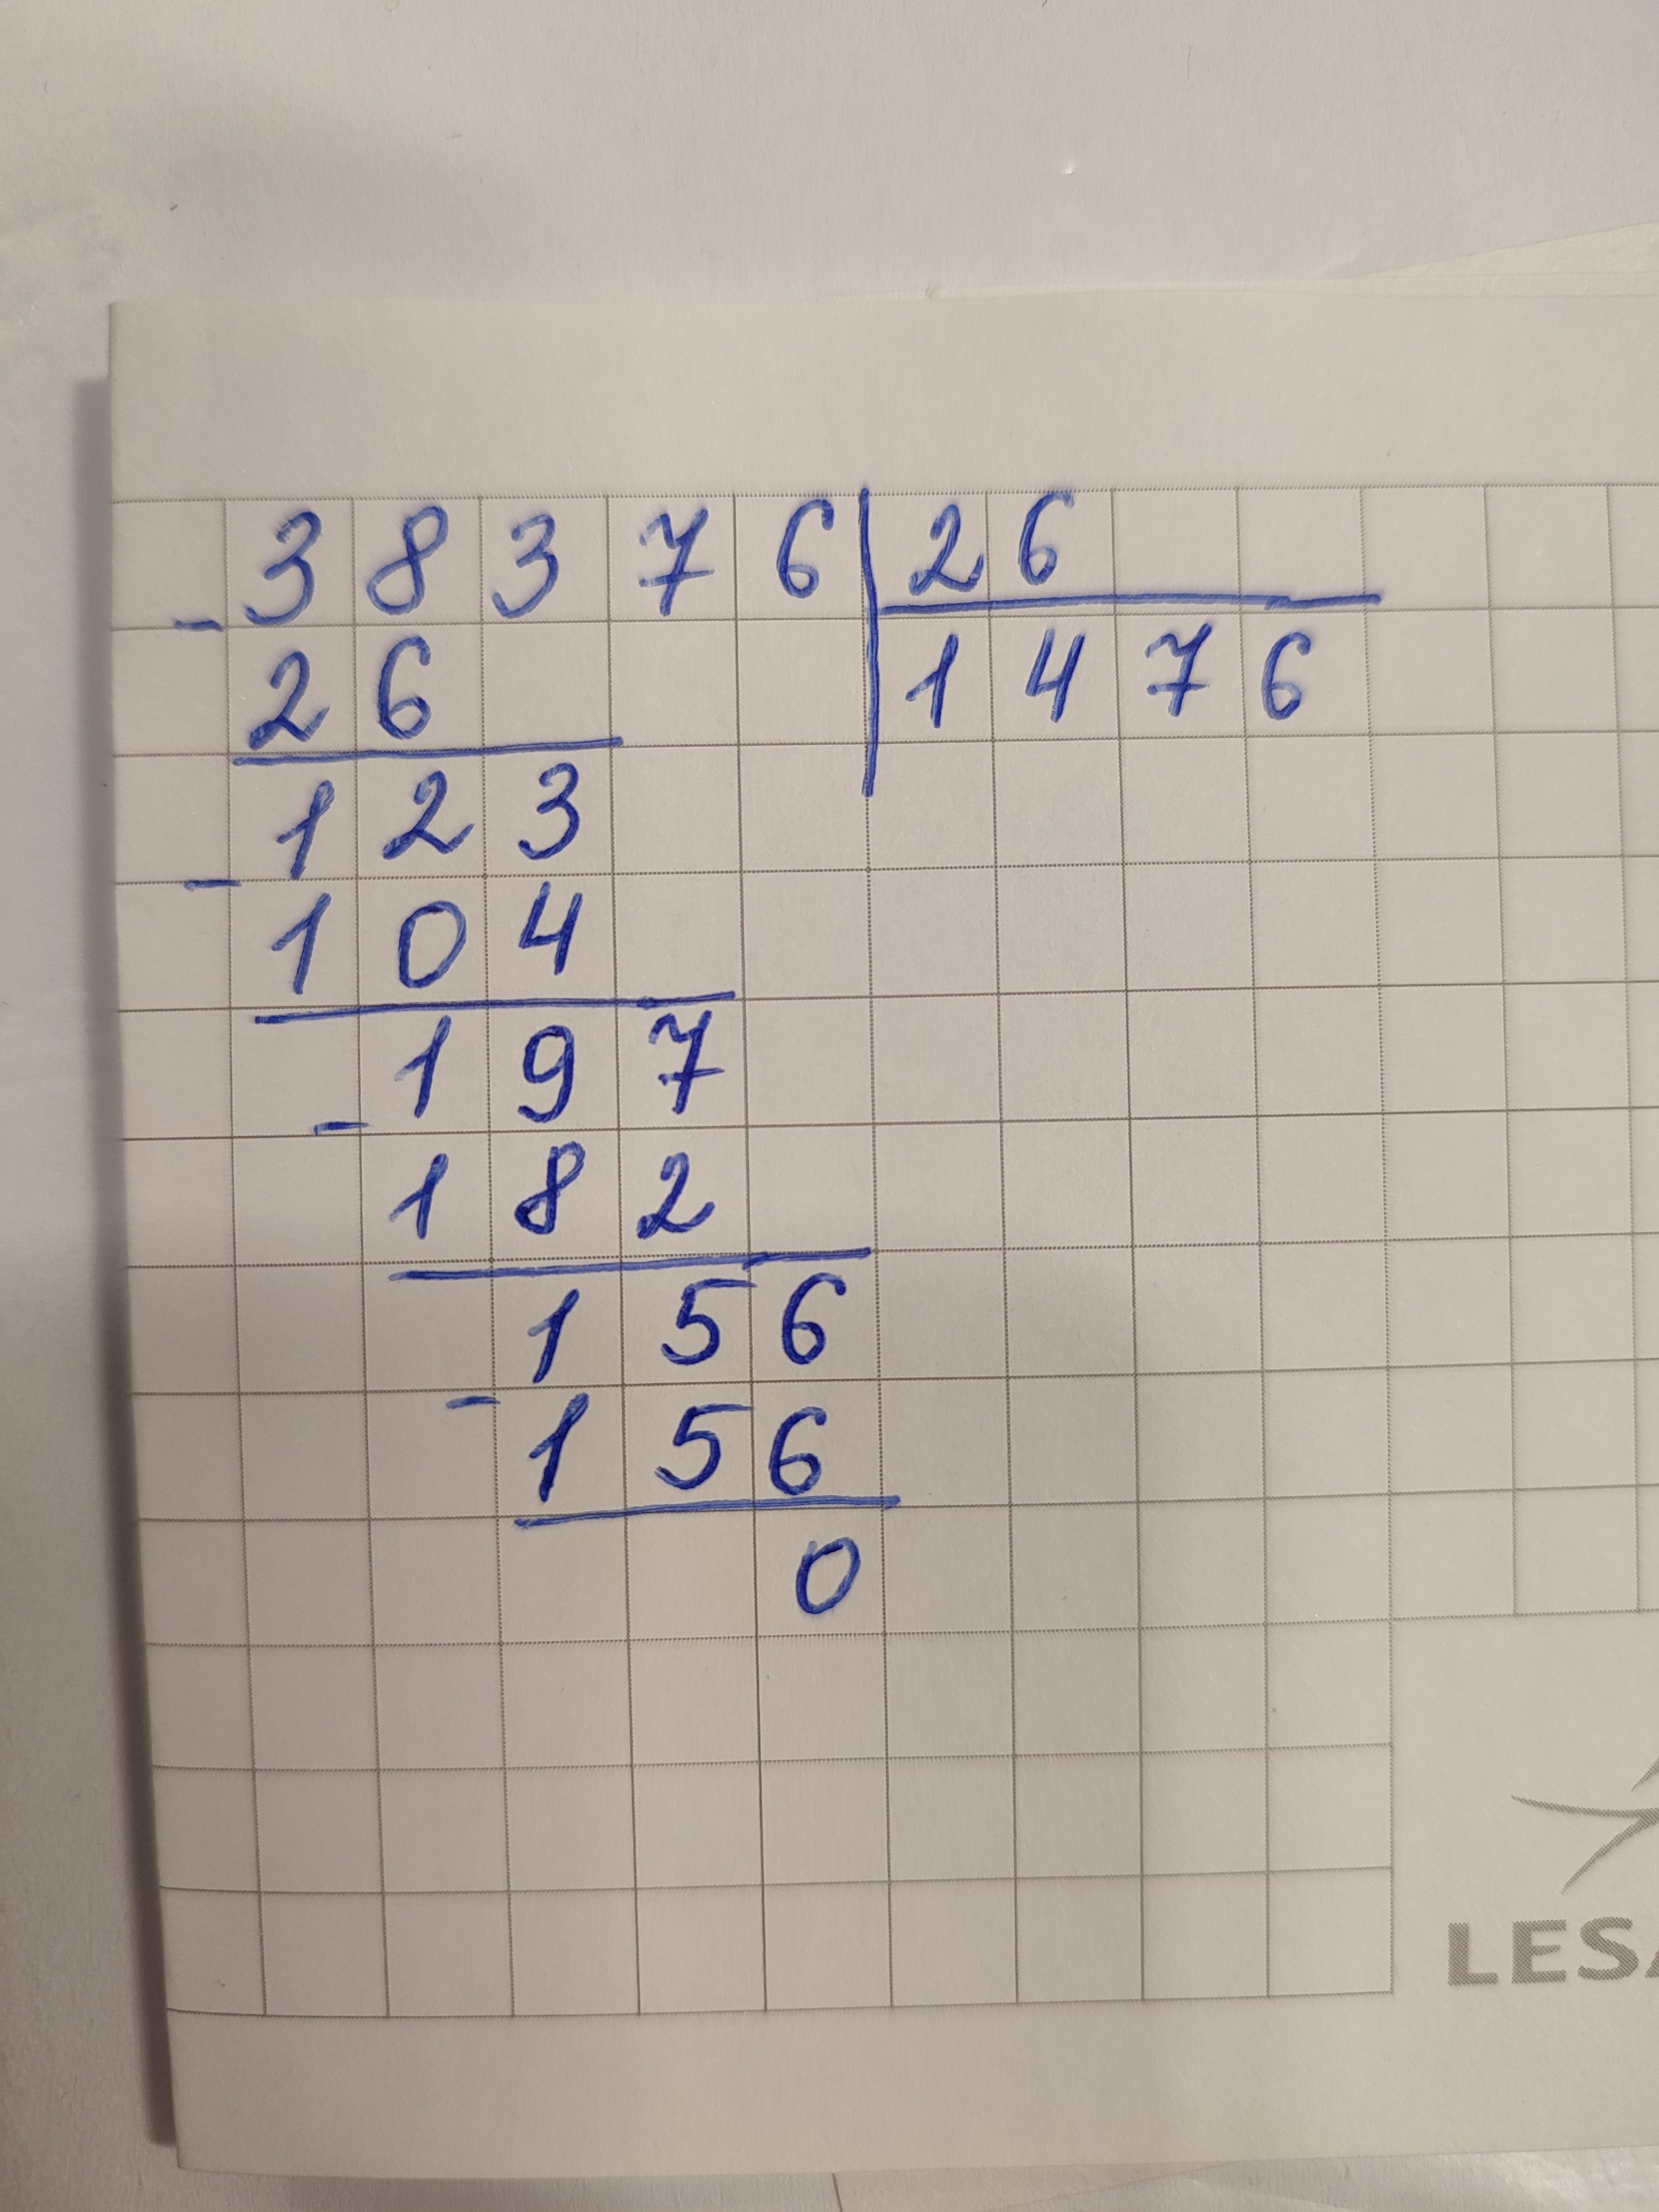 38376 | 26
- 26 | 1476
123
- 104
197
- 182
156
- 156
0